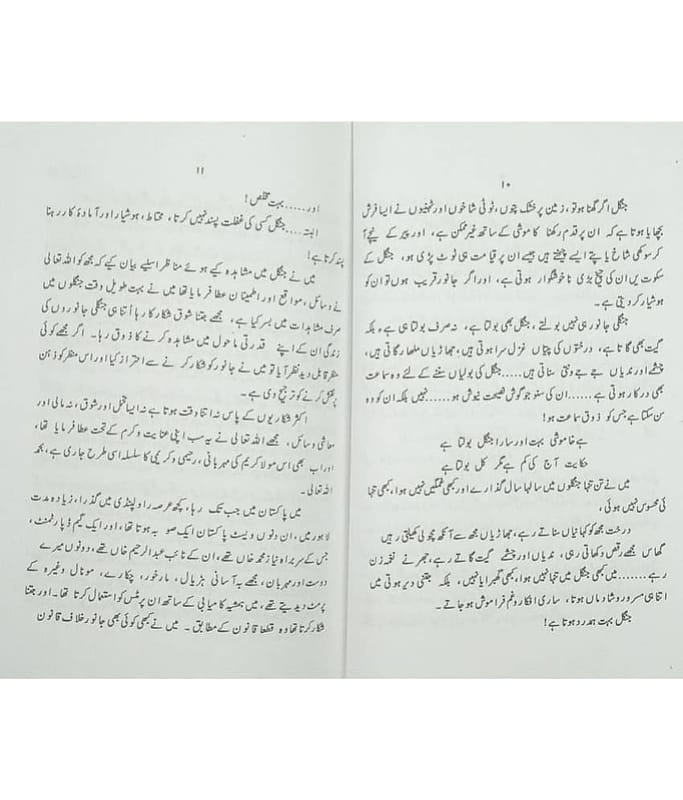 ۱۰
جنگل اگر گھنا ہو تو، زمین پر خشک پتوں، ٹوٹی شاخوں اور ٹہنیوں نے ایسا فرش
بچھایا ہوتا ہے کہ ان پر قدم رکھنا خاموشی کے ساتھ غیر ممکن ہے، اور پیر کے نیچے آ
کر سوکھی شاخ یا پتے ایسے چیختے ہیں جیسے ان پر قیامت ہی ٹوٹ پڑی ہو، جنگل کے
سکوت میں ان کی چیخ بڑی ناخوشگوار ہوتی ہے، اور اگر جانور قریب ہوں تو ان کو
ہوشیار کر دیتی ہے۔
جنگلی جانور ہی نہیں بولتے، جنگل بھی بولتا ہے، نہ صرف بولتا ہی ہے، بلکہ
گیت بھی گاتا ہے، درختوں کی پتیاں غزل سرا ہوتی ہیں، جھاڑیاں ملھار گاتی ہیں،
چشمے اور ندیاں جے جے ونتی سناتی ہیں.....جنگل کی بولیاں سننے کے لئے وہ سماعت
بھی درکار ہوتی ہے.....ان کی سنو جو گوش نصیحت نیوش ہو....نہیں بلکہ ان کو وہ
سن سکتا ہے جس کو ذوق سماعت ہو!
ہے خاموشی بہت اور سارا جنگل بولتا ہے
حکایت آج کی کم ہے مگر کل بولتا ہے
میں نے تن تنہا جنگلوں میں سالہا سال گذارے اور کبھی غمگیں نہیں ہوا، کبھی تنہا
ئی محسوس نہیں ہوئی،
درخت مجھ کو کہانیاں سناتے رہے، جھاڑیاں مجھ سے آنکھ مچولی کھیلتی رہیں
گھاس مجھے رقص دکھاتی رہی، ندیاں اور چشمے گیت گاتے رہے، جھرنے نغمہ زن
رہے.......میں کبھی جنگل میں تنہا نہیں ہوا، کبھی گھبرایا نہیں، بلکہ جتنی دیر ہوتی میں
اتنا ہی مسرور و شاداں ہوتا، ساری افکار و غم فراموش ہو جاتے۔
جنگل بہت ہمدرد ہوتا ہے!
۱۱
اور......بہت مخلص!
البتہ....جنگل کسی کی غفلت پسند نہیں کرتا، محتاط، ہوشیار اور آمادۂ کار رہنا
پسند کرتا ہے!
میں نے جنگل میں مشاہدہ کیے ہوئے مناظر اسلیے بیان کیے کہ مجھ کو اللہ تعالی
نے وسائل، مواقع اور اطمینان عطا فرمایا تھا میں نے بہت طویل وقت جنگلوں میں
صرف مشاہدات میں بسر کیا ہے، مجھے جتنا شوق شکار کا رہا اُتنا ہی جنگلی جانوروں کی
زندگی ان کے اپنے قدرتی ماحول میں مشاہدہ کرنے کا ذوق رہا۔ اگر مجھے کوئی
منظر قابل دید نظر آیا تو میں نے جانور کو شکار کرنے سے احتراز کیا اور اس منظر کو ذہن
پر نقش کرنے کو ترجیح دی ہے۔
اکثر شکاریوں کے پاس نہ اتنا وقت ہوتا ہے نہ ایسا تحمل اور شوق، نہ مالی اور
معاشی وسائل، مجھے اللہ تعالی نے یہ سب اپنی عنایت و کرم کے تحت عطا فرمایا تھا،
اور اب بھی اس مولا کریم کی مہربانی، رحیمی و کریمی کا سلسلہ اسی طرح جاری ہے، بحمد
اللہ تعالی۔
میں پاکستان میں جب تک رہا، کچھ عرصہ راولپنڈی میں گذرا، زیادہ مدت
لاہور میں، ان دنوں ویسٹ پاکستان ایک صوبہ ہوتا تھا، اور ایک گیم ڈپارٹمنٹ،
جس کے سربراہ نیاز محمد خاں تھے، ان کے نائب عبدالرحیم خاں تھے، دونوں میرے
دوست اور مہربان، مجھے بہ آسانی ہڑیال، مارخور، چکارے، مونال وغیرہ کے
پرمٹ دیدیتے تھے، میں ہمیشہ کامیابی کے ساتھ ان پرمٹس کو استعمال کرتا تھا۔ اور جتنا
شکار کرتا تھا وہ قطعاً قانون کے مطابق۔ میں نے کبھی کوئی بھی جانور خلاف قانون